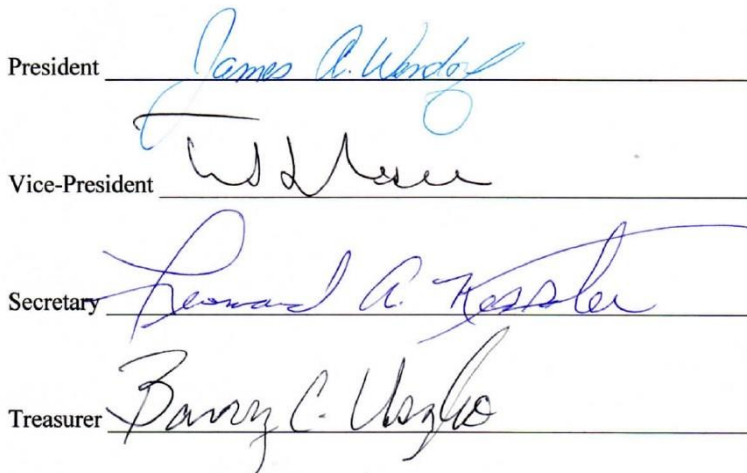 President James A.
Vice-President
Secretary Leonard A. Kessler
Treasurer Barry C.